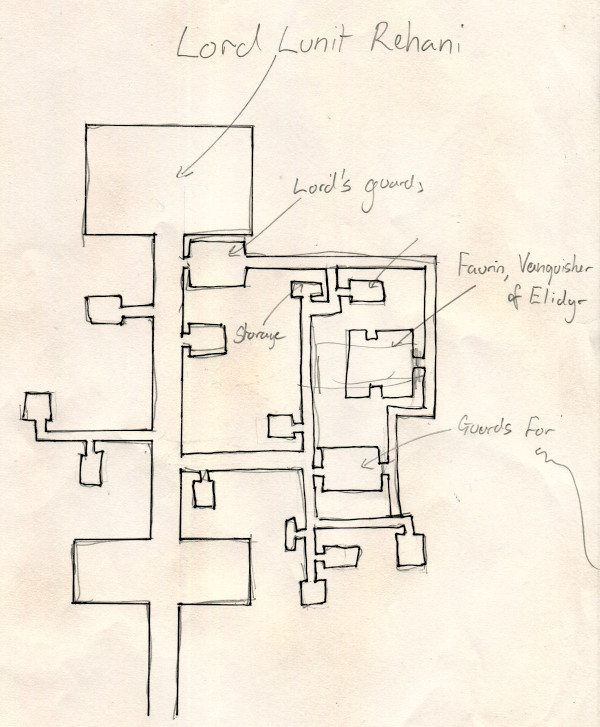 Lord Lunit Rehani
Lord's guards
Faurin, Vanquisher
of Elidyr
Storage
Guards for